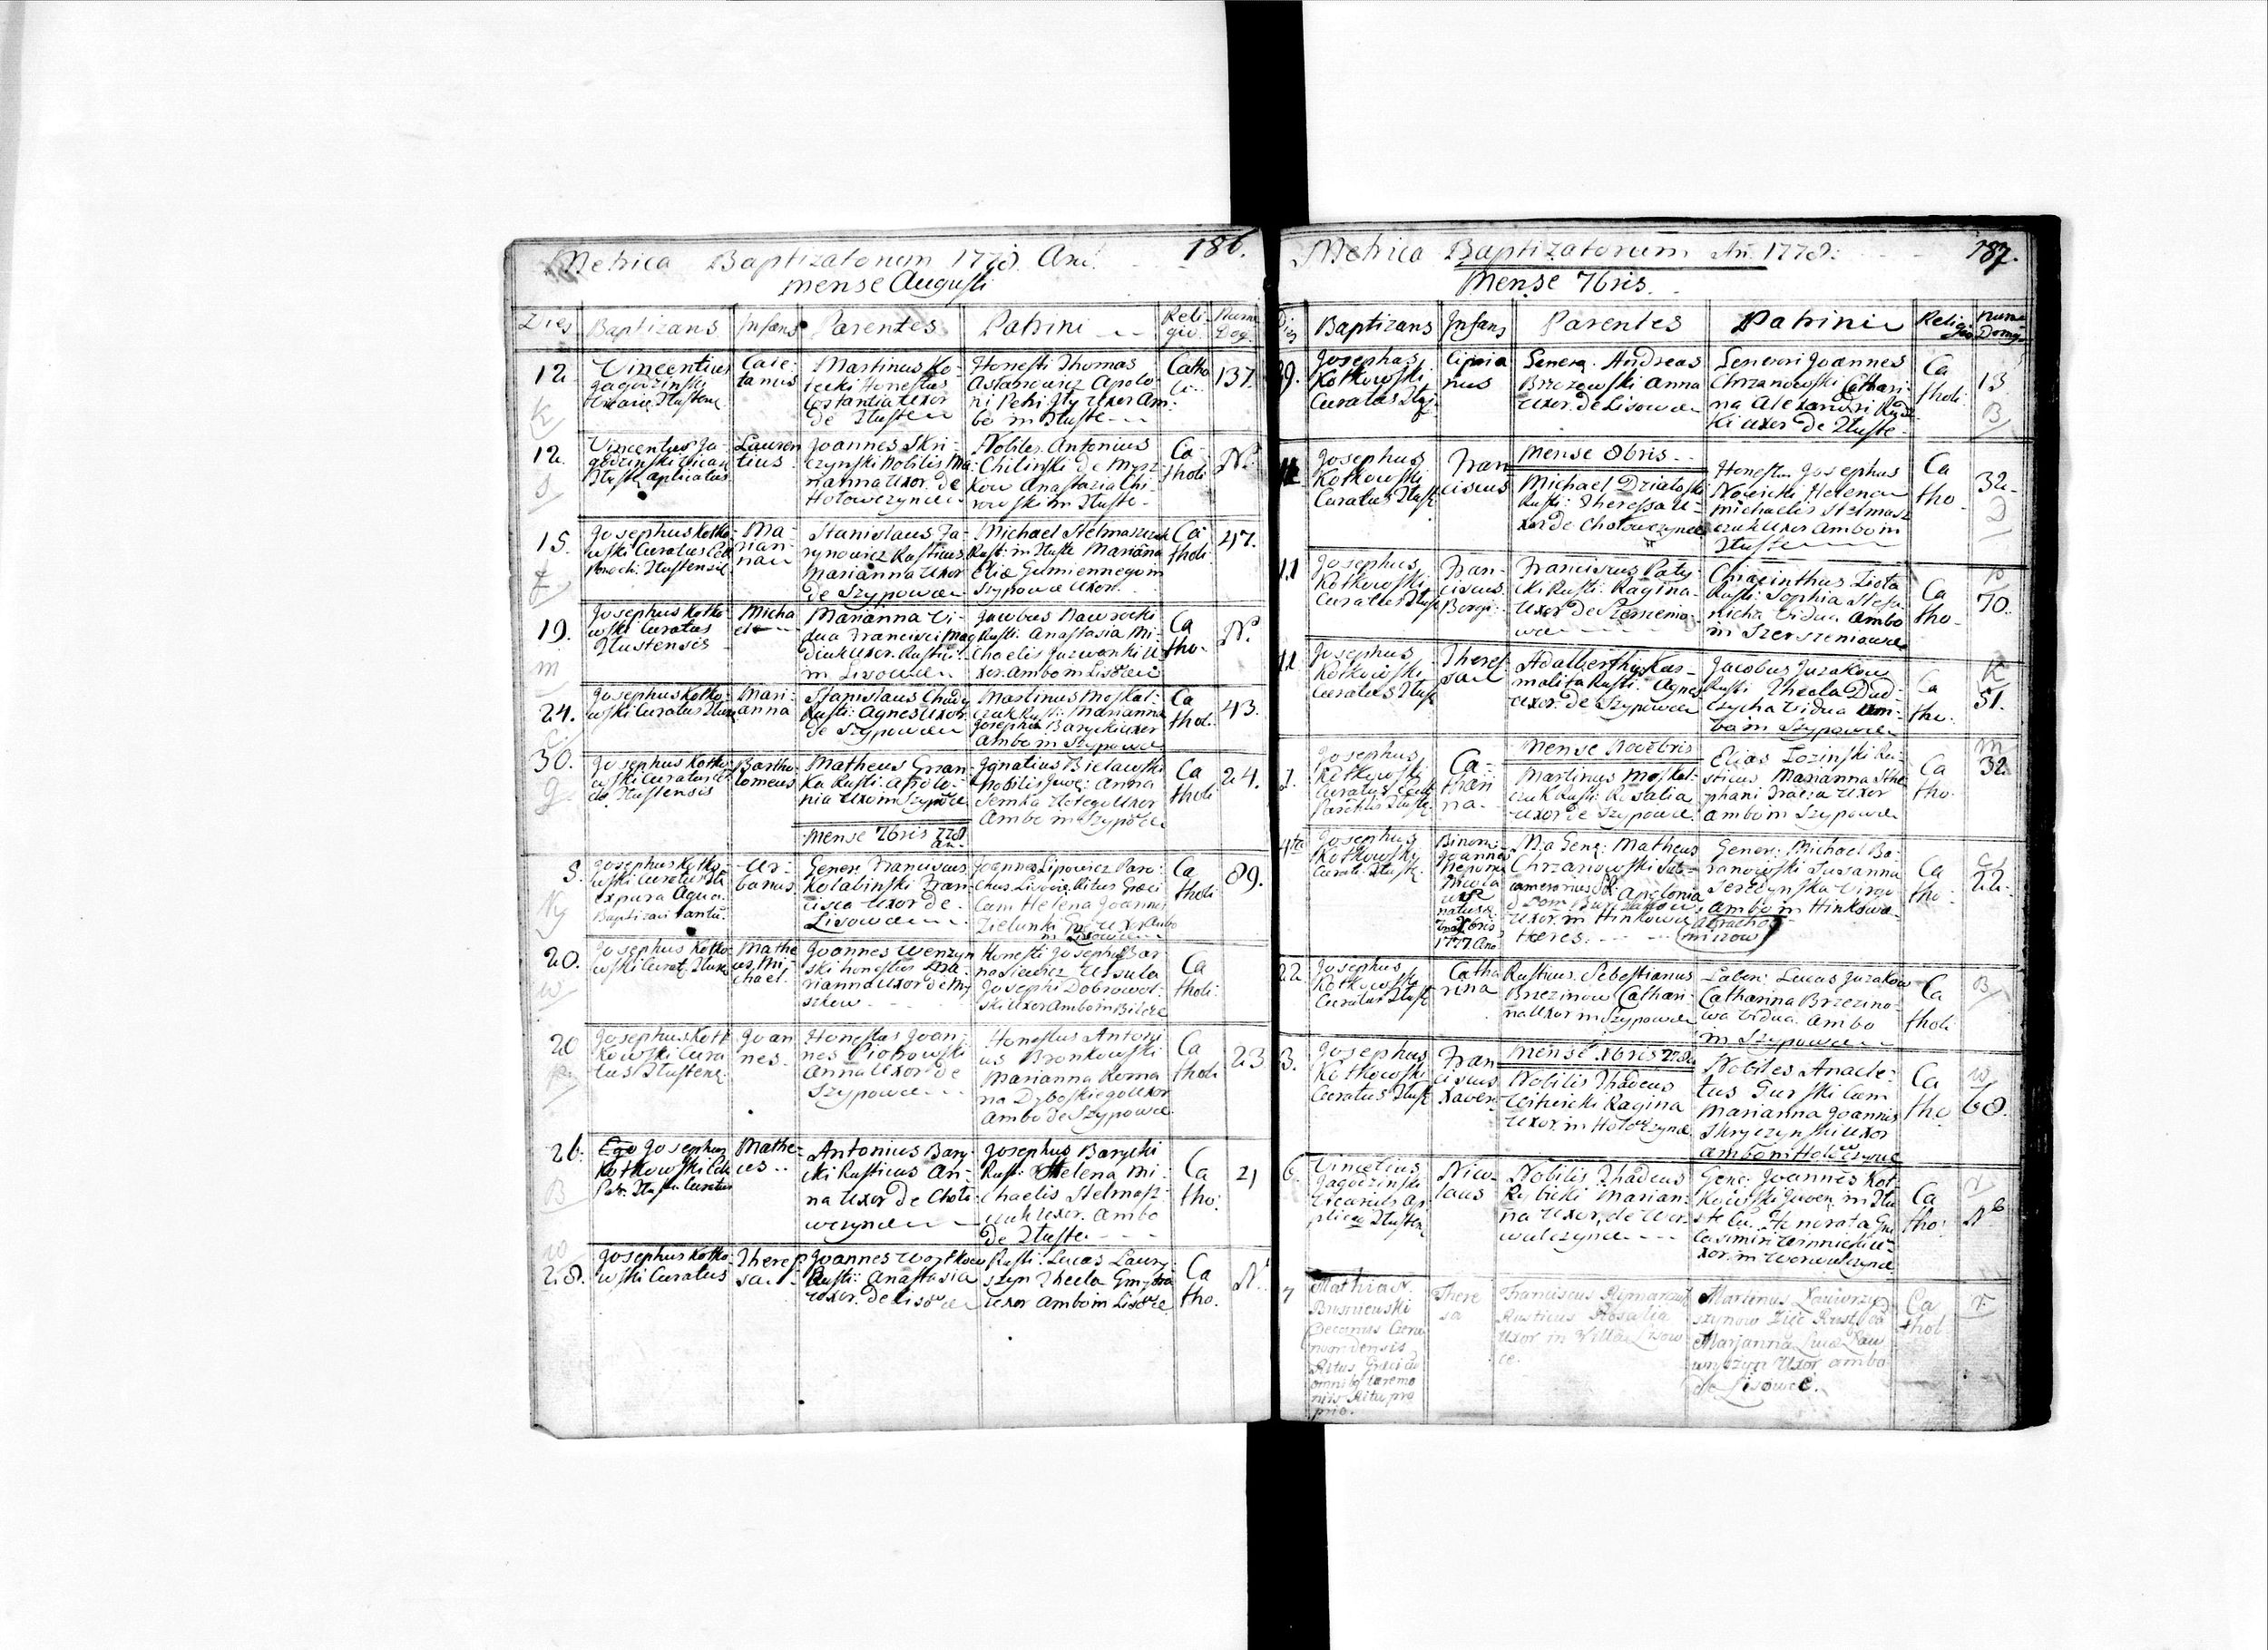 Metrica Baptizatorum 1778 An̄i. 186.
mense Augusti
Dies Baptizans Infans Parentes Patrini Reli-
gio. Num
Dom.
12
K
Vincentius
Jagodzinski
Vicarius Tłusten.
Caie-
tanus
Martinus Ko-
tecki Honestus
Costantia Uxor
de Tłuste
Honesti Thomas
Astanowicz Apolo-
ni Petri Uxor Am-
bo in Tłuste
Catho
li.
137.
12.
S
Vincentius Ja-
godzinski Vicari
Tłuste aplicatus
Lauren
tius
Joannes Skri-
czynski Nobilis Ma-
rianna Uxor. de
Hołowczynce
Nobiles Antonius
Chilinski de Mysz
kow Anastazia Chi-
rowski in Tłuste.
Ca-
tholi
N.
15.
Josephus Kotko-
wski Curatus Ecl
Paroch. Tłustensis
Ma-
rian-
na
Stanislaus Ja-
rynowicz Rusticus
Marianna Uxor
de Szypowce
Michael Stelmaszczuk
Rusti: in Tłuste Marianna
Eliæ Gumiennego in
Szypowce Uxor.
Ca
tholi
47.
19.
m
Josephus Kotko-
wski Curatus
Tłustensis
Micha
el
Marianna Vi-
dua Francisci Mag
dziuk Uxor. Rustici
in Lisowce
Jacobus Nawrocki
Rusti. Anastasia Mi-
chaelis U-
xor. Ambo in Lisowce
Ca
tho.
N.
24.
Josephus Kotko-
wski Curatus Tłuste
Mari-
anna
Stanislaus Chudy
Rusti: Agnes Uxor
de Szypowce
Martinus Moskal-
czuk Rusti: Marianna
Josephi Barycki Uxor
Ambo in Szypowce
Ca
tholi.
43.
30.
G.
Josephus Kotko-
wski Curatus
Tłustensis
Bartho-
lomeus
Matheus Gran-
ka Rusti: Apolo-
nia Uxor in Szypowce
Ignatius Bielawski
Nobilis Juve: Anna
Semka Uxor
Ambo in Szypowce
Ca
tholi
24.
Mense 7bris 778
an.
8.
Josephus Kotko-
wski Curatus
ex pura Aqua
Baptizavi tantū.
Ur-
banus
Gener. Franciscus
Kolabinski Fran-
cisca Uxor de
Lisowce
Joannes Lipowicz Paro-
chus Lisowce. Ritus Græci
Cum Helena Joannis
Zielunki Gr. Uxor Ambo
in Lisowce
Ca
tholi
89.
20.
W
Josephus Kotko-
wski Curat. Tłuste
Mathe
us, Mi-
chael.
Joannes Wenzyn
ski honestus Ma-
rianna Uxor de My
szkow
Honesti Josephus Bar
nasiewicz Ursula
Josephi Dobrowol-
ski Uxor Ambo in Bilcze
Ca
tholi:
20
P
Josephus Kot-
kowski Cura
tus Tłusten:
Joan
nes.
Honestus Joan-
nes Piotrowski
Anna Uxor de
Szypowce
Honestus Antoni
us Bronkowski
Marianna Roma
na Dyboskiego Uxor
Ambo de Szypowce
Ca
tholi
23
26.
B
Ego Josephus
Kotkowski Eccl
Par. Tłuste. Curatus
Mathe-
us
Antonius Bary-
cki Rusticus An-
na Uxor de Choło-
wczynce
Josephus Barycki
Rusti Helena Mi-
chaelis Stelmasz-
czuk Uxor. Ambo
de Tłuste.
Ca
tho:
21
W
28.
Josephus Kotko-
wski Curatus
There-
sa
Joannes Woytkow
Rusti: Anastasia
Uxor. de Lisowce
Rusti. Lucas Lawry-
szyn Thecla
Uxor Ambo in Lisowce
Ca
tho.
N.
Metrica Baptizatorum An. 1778. 187.
Mense 7bris.
Dies Baptizans Infans Parentes Patrini Religio Num
Domus
29.
Josephus
Kotkowski
Curatus Tłus.
Cipria
nus
Genera. Andreas
Brzozowski Anna
Uxor. de Lisowce
Generosi Joannes
Chrzanowski Cathari-
na Alexandri Rudz
ki uxor de Tłuste.
Ca
tholi.
13.
B
Mense 8bris
11
Josephus
Kotkowski
Curatus Tłust
Fran
ciscus
Michael Działoski
Rusti: Theressa U-
xor de Chołowczynce
Honestu. Josephus
Nowicki Helena
Michaelis Stelmasz
czuk Uxor Ambo in
Tłuste
Ca
tho
32.
D
11
Josephus
Kotkowski
Curatus Tłust
Fran-
ciscus
Borgi:
Franciscus Paty-
cki Rusti: Ragina
Uxor de Szersenio-
wce
Chiacinthus Ziota
Rusti: Sophia Stefa-
nicha Vidua Ambo
in Szerszeniowce
Ca
tho.
P
70.
11
Josephus
Kotkowski
Curatus Tłust
Theres
sa
Adalberthus Kar-
malita Rusti. Agnes
Uxor. de Szypowce
Jacobus Juzakow
Rusti Thecla Dud-
czycha Vidua Am-
bo in Szypowce
Ca
tho.
K
51.
Mense Novēbris
1.
Josephus
Kotkowski
Curatus Eccl
Paro Tłuste
Ca-
thari
na
Martinus Moskal-
czuk Rusti: Rosalia
Uxor de Szypowce
Elias Lozinski Ru-
sticus Marianna Ste
phani Uxor
ambo in Szypowce
Ca
tho.
M
32
4ta
Josephus
Kotkowski
Curat: Tłust.
Binom:
Joannes
Nepom:
Nicola
us
natus
7bris
1777 Ano
Ma Gene: Matheus
Chrzanowski Sub-
camerarius
Apolonia
Uxor. in Hinkowce
Heres.
Gener: Michael Ba-
ranowski Susanna
Virgo
Ambo in Hinkowce
Ca
tho.
22.
22
Josephus
Kotkowski
Curatus Tłust
Catha
rina
Rusticus. Sebestianus
Brzezinow Cathari-
na Uxor in Szypowce
Labori: Lucas Juzakow
Catharina Brzezino-
wa Vidua Ambo
in Szypowce
Ca
tholi
B
Mense Xbris 778
3.
Josephus
Kotkowski
Curatus Tłust
Fran
ciscus
Xaver.
Nobilis Thadeus
Witwicki Ragina
Uxor in Hołowczynce
Nobiles Anacle-
tus Gurski Cum
Marianna Joannis
Skryczynski Uxor
ambo in Holowczynce
Ca
tho
W
68.
6.
Vincetius
Jagodzinski
Vicarius ap
plica Tłusten
Nico
laus
Nobilis Thadeus
Rybicki Marian-
na Uxor, de Wor-
wulczynce
Gene: Joannes Kot-
kowski Juven. in Tłu
ste Cū. Honorata
Casimiri Winnicki U-
xor. in Worwulczynce
Ca
tho:
N
7
Mathias
Busniewski
Decanus Czerw
nordensis
Ritus Græci cū
omnib9 ceremo
niis Ritu pro
prio.
There
sa
Franciscus Rymarz
Rusticus Rosalia
Uxor in Villa Lisow
ce.
Martinus Lawry
szynow Rust
Marjanna Lucæ Law
ryszyn Uxor ambo
de Lisowce.
Ca
thol
R